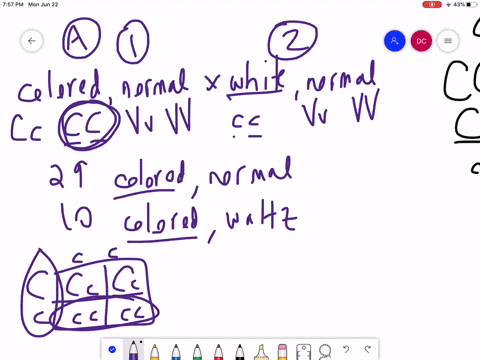 7:57 PM Mon Jun 22
43%
A 1 2
DC
colored, normal x white, normal
Cc CC Vv VV cc Vv VV
29 colored, normal
10 colored, waltz
c c
C Cc Cc
c cc cc